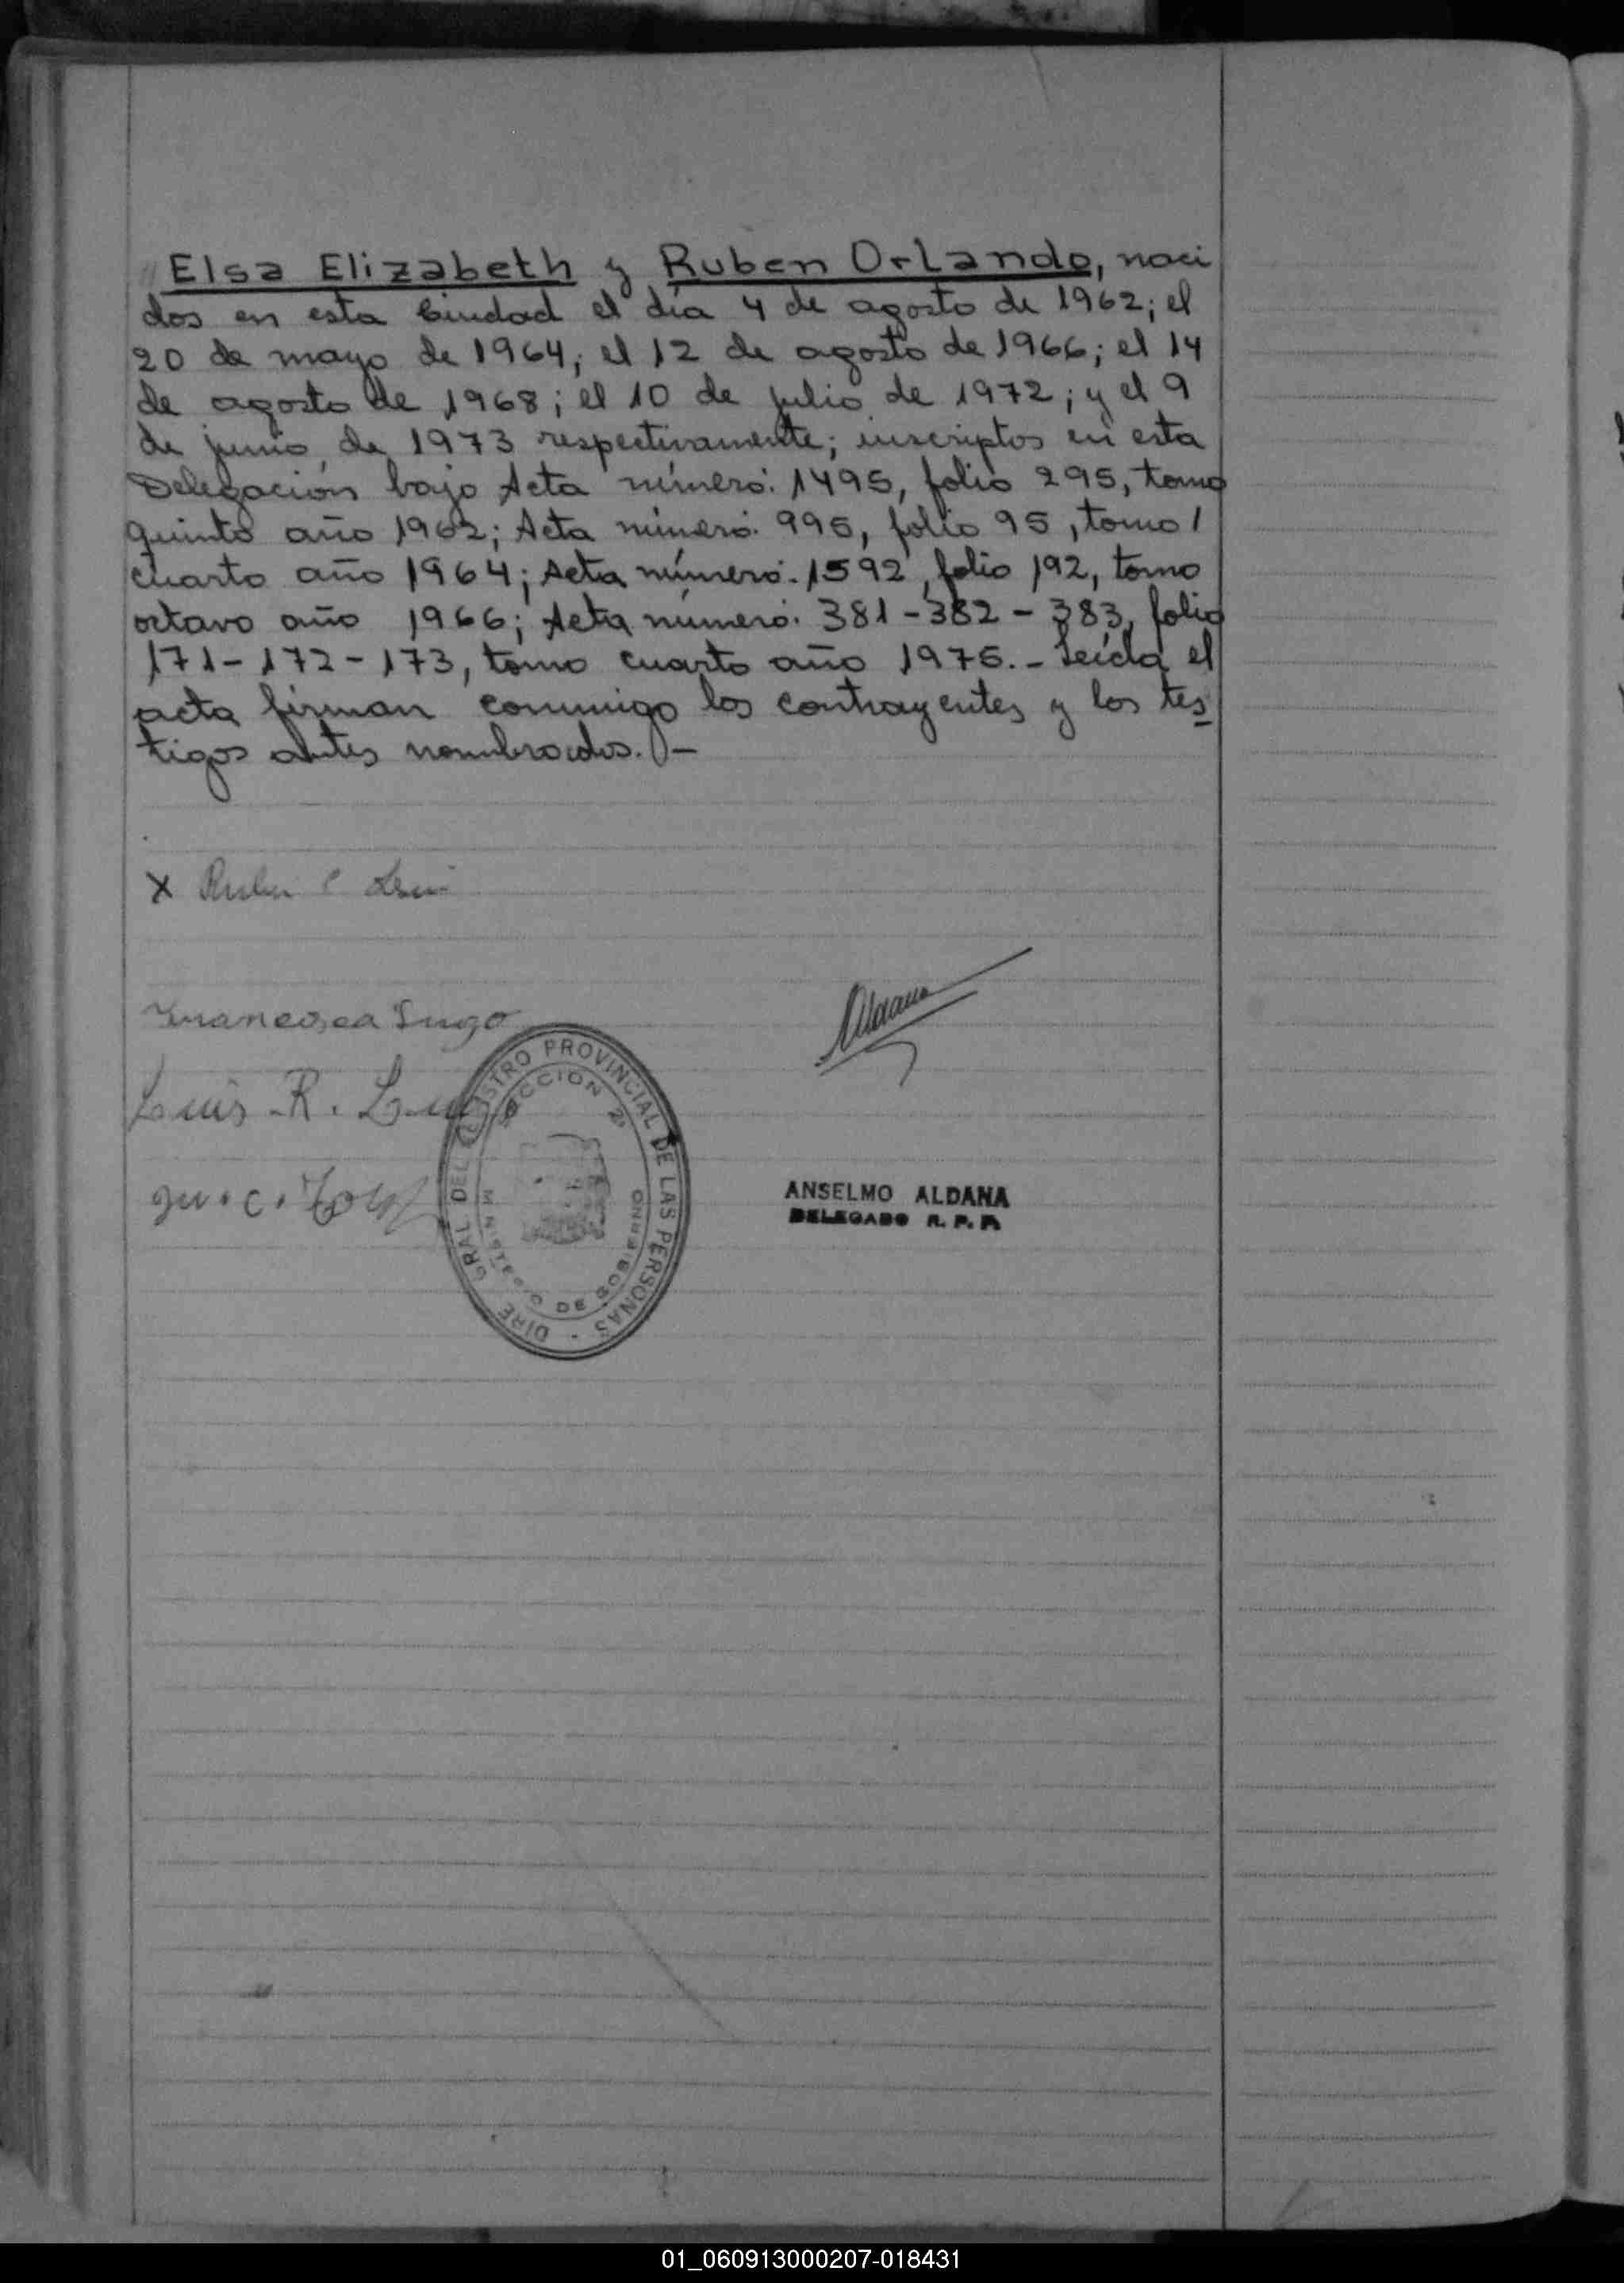 Elsa Elizabeth y Ruben Orlando, naci
dos en esta Ciudad el día 4 de agosto de 1962; el
20 de mayo de 1964; el 12 de agosto de 1966; el 14
de agosto de 1968; el 10 de julio de 1972; y el 9
de junio de 1973 respectivamente; inscriptos en esta
Delegación bajo Acta número: 1495, folio 295, tomo
quinto año 1962; Acta número: 995, folio 95, tomo
cuarto año 1964; Acta número: 1592, folio 192, tomo
octavo año 1966; Acta número: 381-382-383, folio
171-172-173, tomo cuarto año 1975.- Leída el
acta firman conmigo los contrayentes y los tes
tigos antes nombrados.-
X Ruben
Francisca Lugo
Luis R.
Aldana
DEL REGISTRO PROVINCIAL DE LAS PERSONAS - DIRE GRAL
SECCION 2ª
MINISTERIO DE GOBIERNO
ANSELMO ALDANA
DELEGADO R. P. P.
01_060913000207-018431